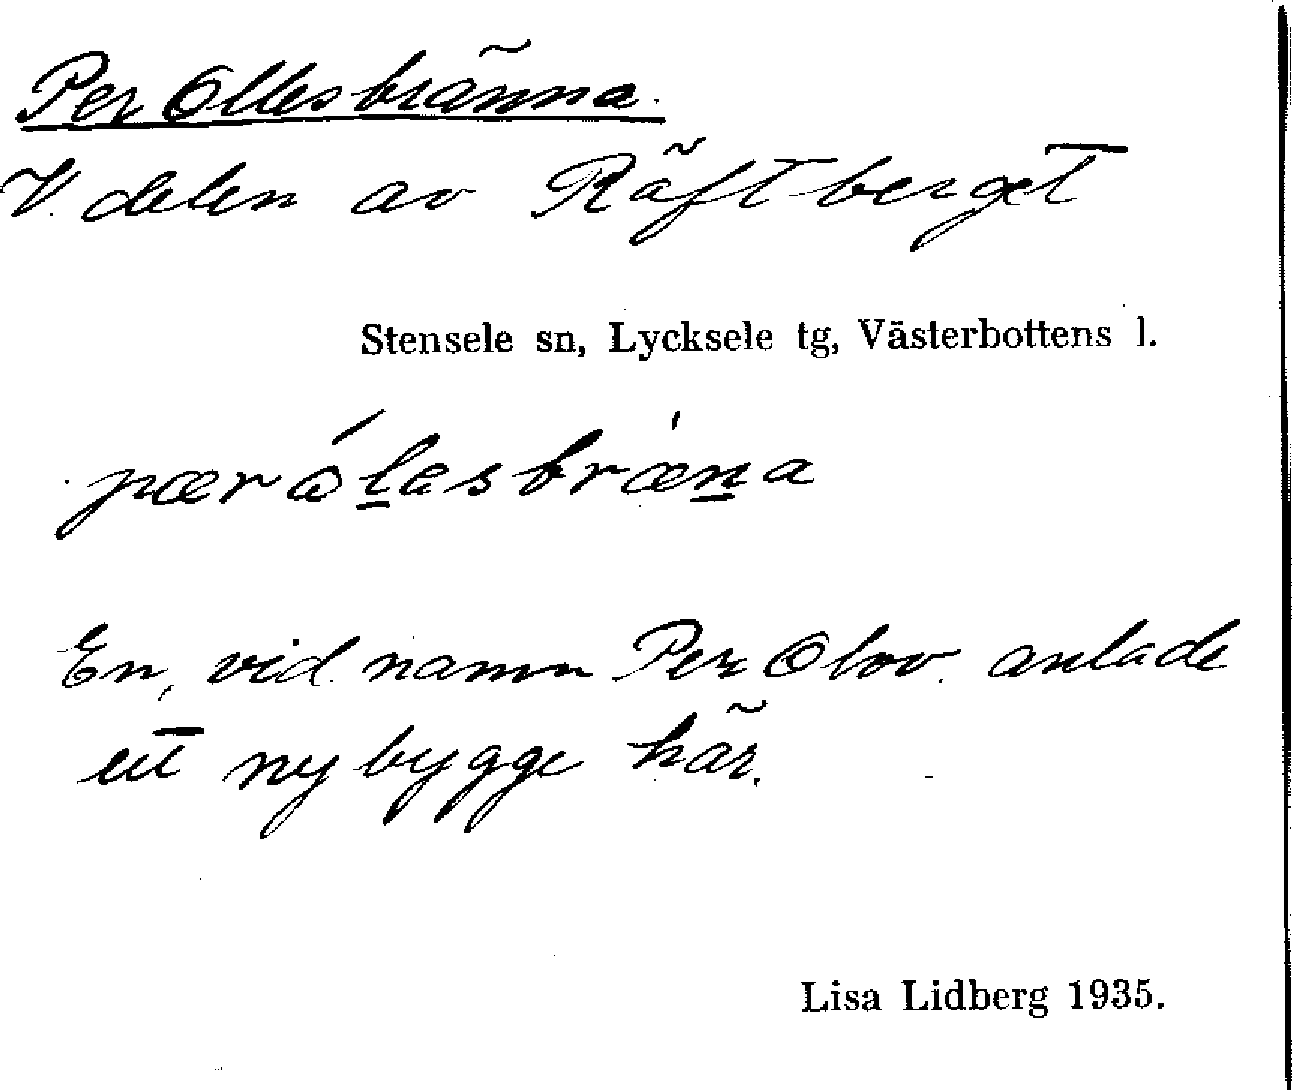 Per Ollesbränna.
V. delen av Räftberget
Stensele sn, Lycksele tg, Västerbottens l.
En, vid namn Per Olov anlade
ett nybygge här.
Lisa Lidberg 1935.